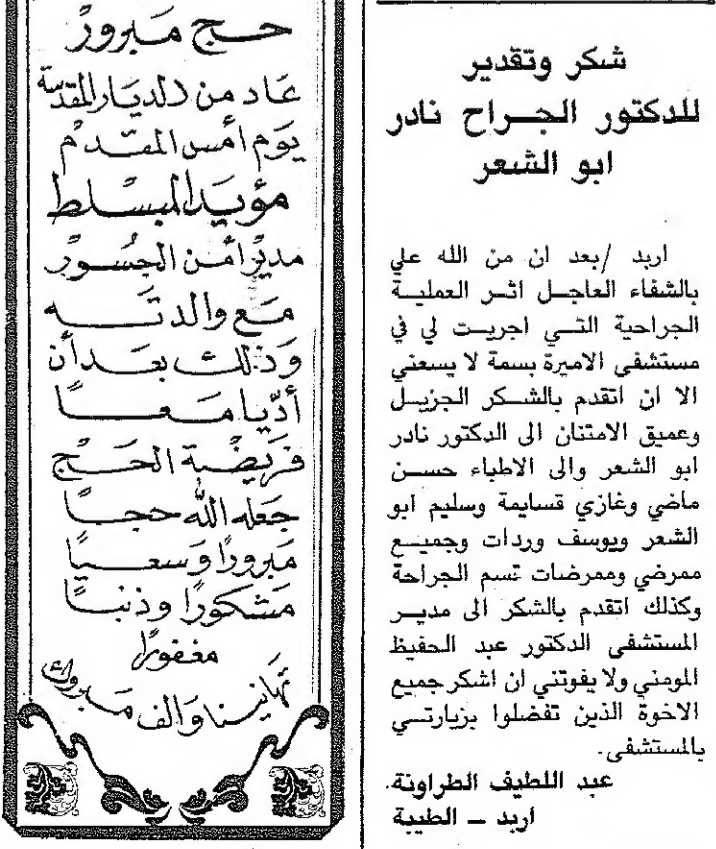 شكر وتقدير
للدكتور الجـــراح نادر
ابو الشعر
اربد /بعد ان من الله علي
بالشفاء العاجــل اثــر العمليــة
الجراحية التــي اجريــت لي في
مستشفى الاميرة بسمة لا يسعني
الا ان اتقدم بالشــكر الجزيــل
وعميق الامتنان الى الدكتور نادر
ابو الشعر والى الاطباء حســن
ماضي وغازي قسايمة وسليم ابو
الشعر ويوسف وردات وجميــع
ممرضي وممرضات تسم الجراحة
وكذلك اتقدم بالشكر الى مديــر
المستشفى الدكتور عبد الحفيظ
المومني ولا يفوتني ان اشكر جميع
الاخوة الذين تفضلوا بزيارتــي
بالمستشفى.
عبد اللطيف الطراونة
اربد – الطيبة
حــج مَبرورٌ
عَاد من الديَار المقدّسة
يَوم امس المقــدم
مؤيَد المبســلط
مديرُ امْن الجسُــورْ
مَع والدتــــه
وَذلك بعَــد أن
أدّيا مَعــــــاً
فَريضَــة الحَــج
جَعله الله حجــاً
مَبرورًا وَسعــيًا
مَشكورًا وذنبــًا
مغفورًا
تهانينــا وَالف مَــبروك